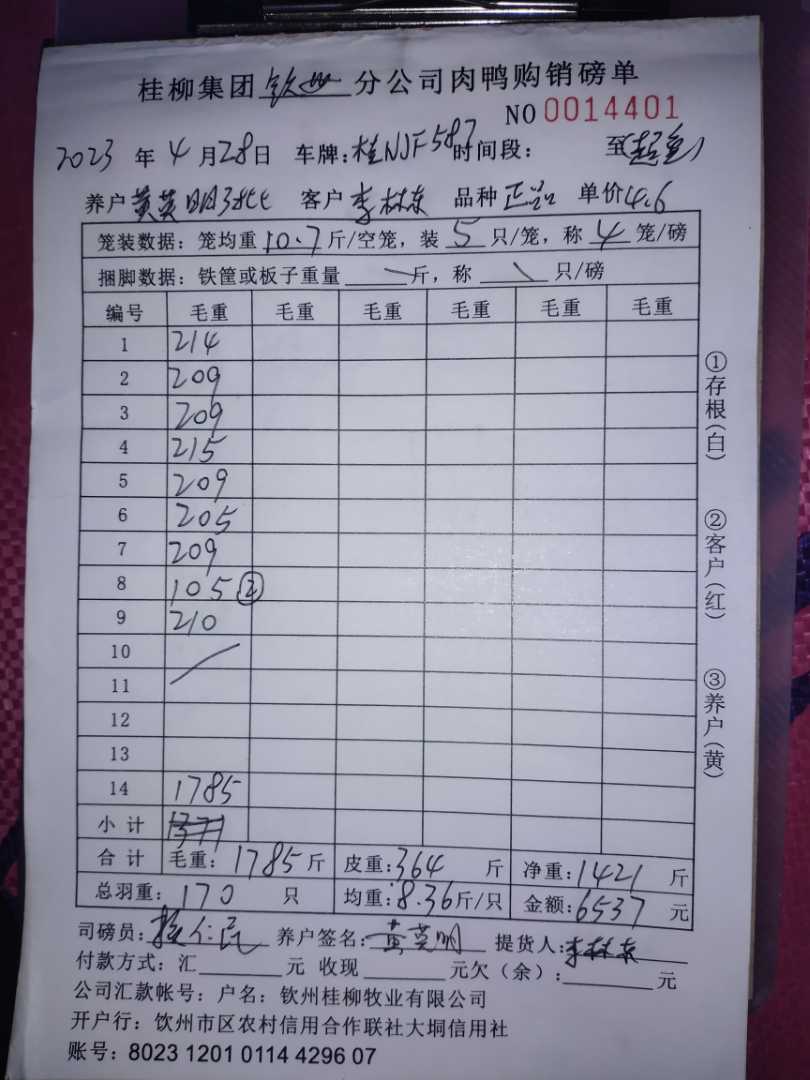 桂柳集团钦州分公司肉鸭购销磅单
NO 0014401
2023年4月28日 车牌:桂NJF587时间段: 至
养户黄英明 客户李林东 品种正品 单价4.6
笼装数据:笼均重10.7斤/空笼,装5只/笼,称4笼/磅
捆脚数据:铁筐或板子重量\斤,称\只/磅
编号 毛重 毛重 毛重 毛重 毛重 毛重
1 214
2 209
3 209
4 215
5 209
6 205
7 209
8 105②
9 210
10
11
12
13
14 1785
小计
合计 毛重:1785斤 皮重:364斤 净重:1421斤
总羽重:170只 均重:8.36斤/只 金额:6537元
司磅员: 养户签名:黄英明 提货人:李林东
付款方式:汇______元 收现______元欠(余):______元
公司汇款帐号:户名:钦州桂柳牧业有限公司
开户行:钦州市区农村信用合作联社大垌信用社
账号:8023 1201 0114 4296 07
①存根(白)
②客户(红)
③养户(黄)